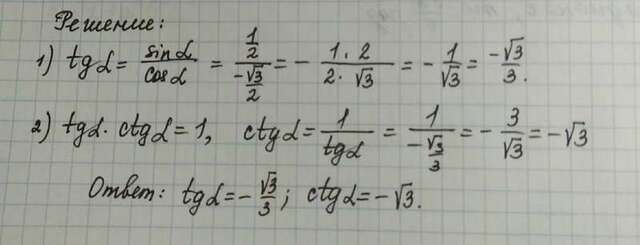 Решение:
1) tg α = sin α / cos α = (1/2) / (-√3/2) = - (1·2) / (2·√3) = - 1/√3 = -√3/3.
2) tg α · ctg α = 1, ctg α = 1 / tg α = 1 / (-√3/3) = - 3/√3 = -√3
Ответ: tg α = - √3/3; ctg α = -√3.